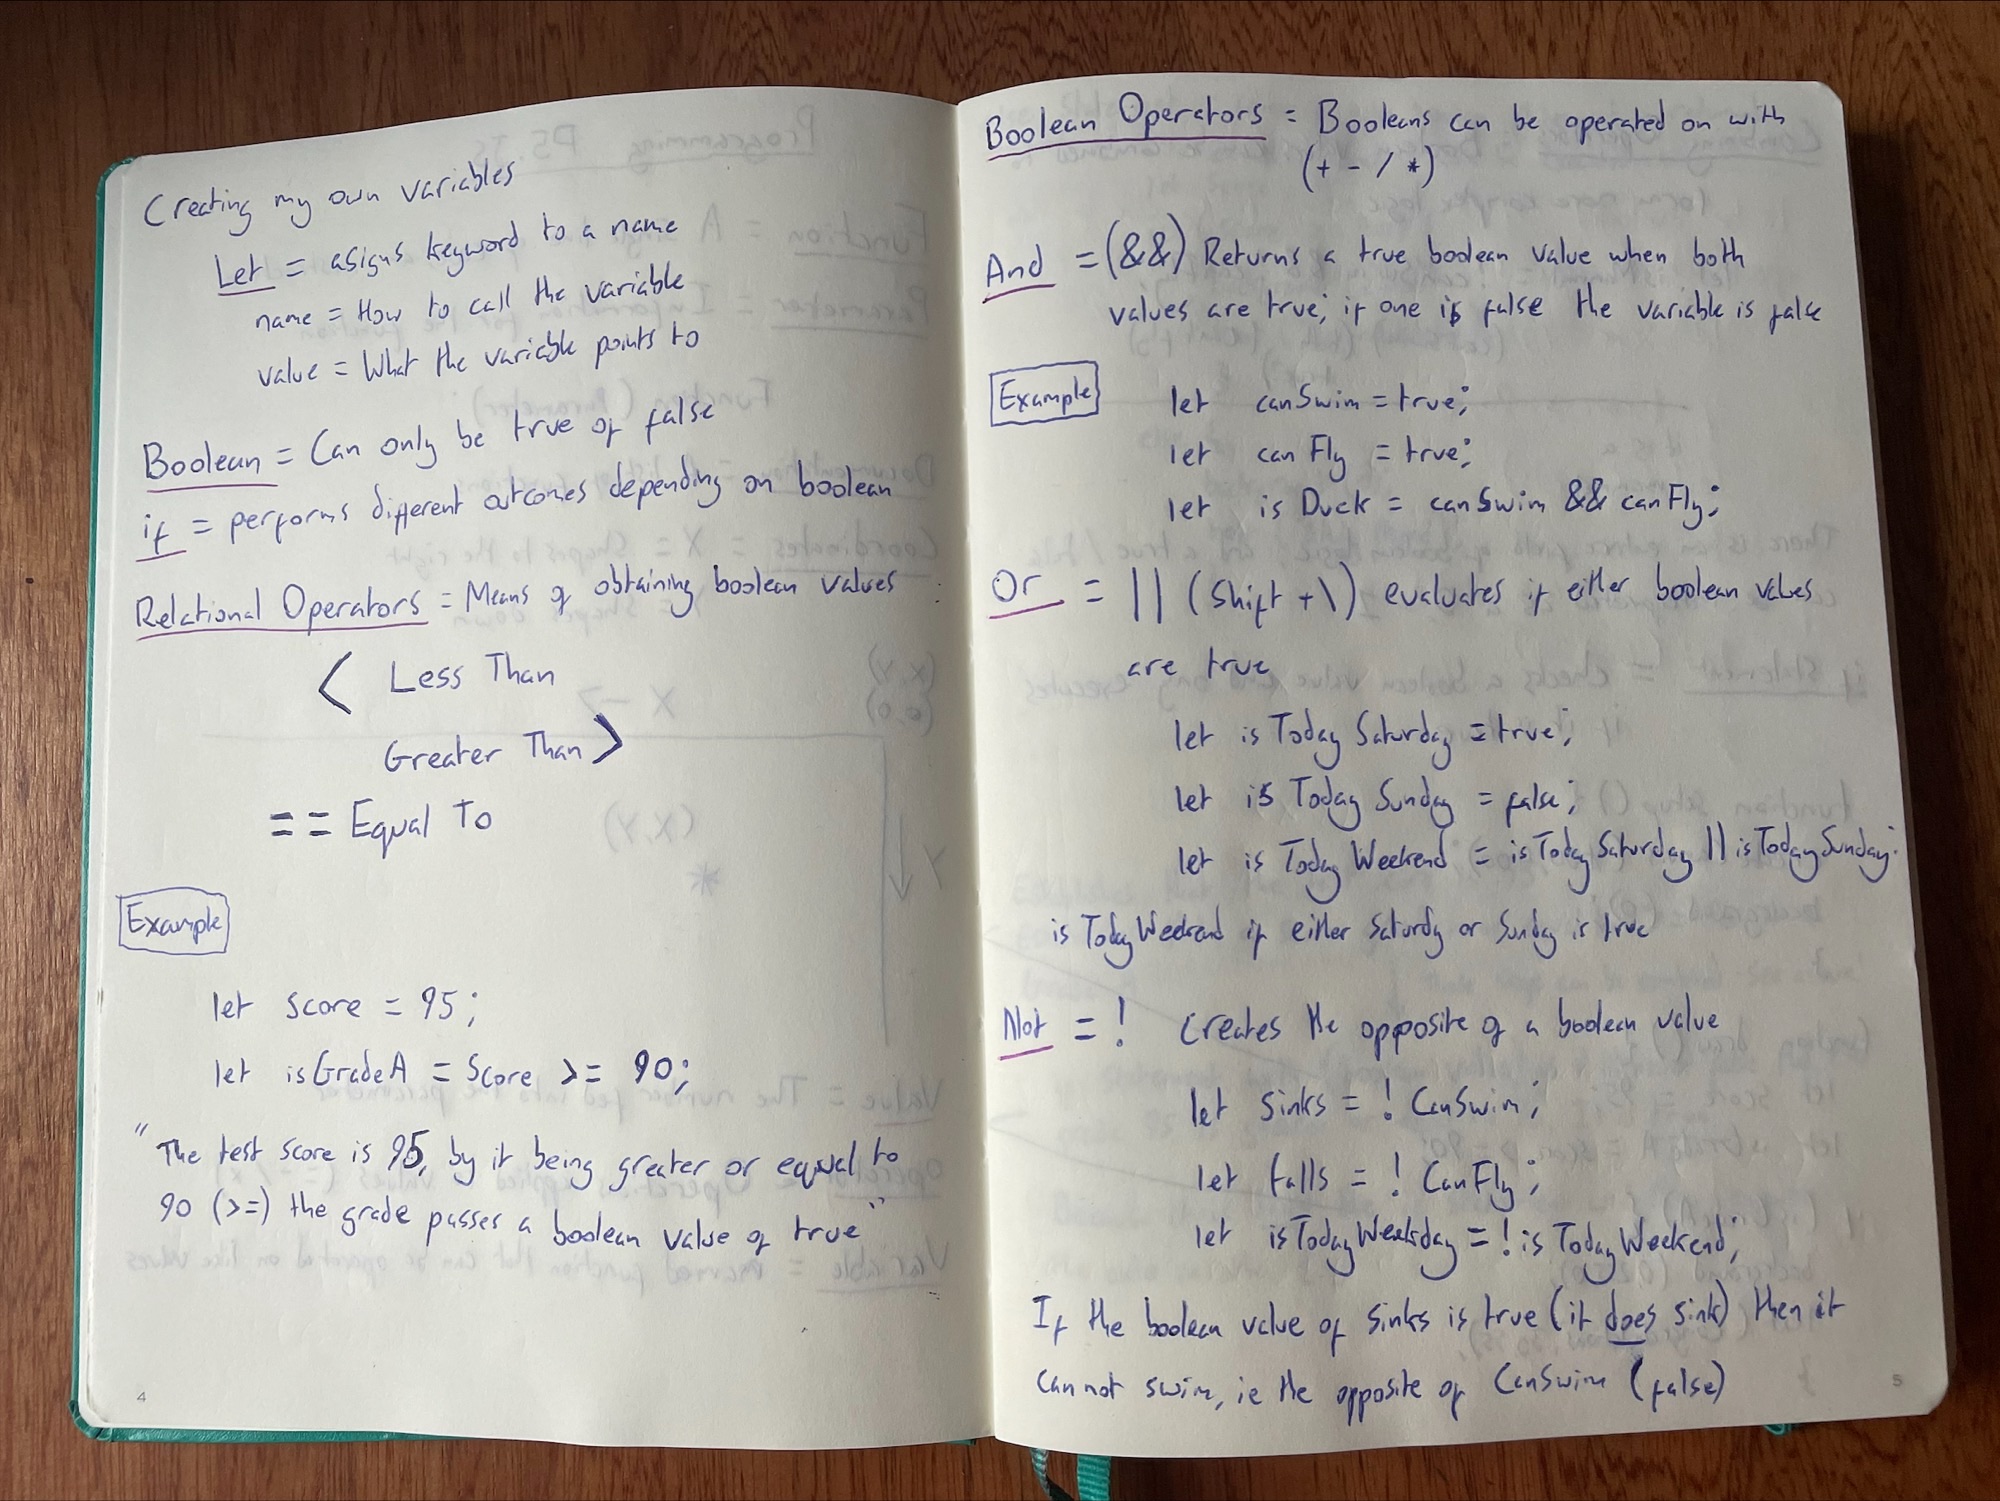 Creating my own variables
Let = asigns keyword to a name
name = How to call the variable
value = What the variable points to
Boolean = Can only be true of false
if = performs different outcomes depending on boolean
Relational Operators = Means of obtaining boolean values
< Less Than
Greater Than >
== Equal To
Example
let score = 95;
let isGradeA = Score >= 90;
"The test score is 95, by it being greater or equal to
90 (>=) the grade passes a boolean value of true"
4
Boolean Operators = Booleans can be operated on with
(+ - / *)
And = (&&) Returns a true boolean value when both
values are true; if one is false the variable is false
Example
let canSwim = true;
let can Fly = true;
let is Duck = canSwim && canFly;
Or = || (Shift + \) evaluates if either boolean values
are true
let is Today Saturday = true;
let is Today Sunday = false;
let is Today Weekend = isTodaySaturday || isTodaySunday;
is TodayWeekend if either Saturdy or Sunday is true
Not = ! Creates the opposite of a boolean value
let sinks = ! CanSwim;
let falls = ! CanFly;
let isTodayWeekday = ! is TodayWeekend;
If the boolean value of sinks is true (it does sink) then it
can not swim, ie the opposite of CanSwim (false)
5